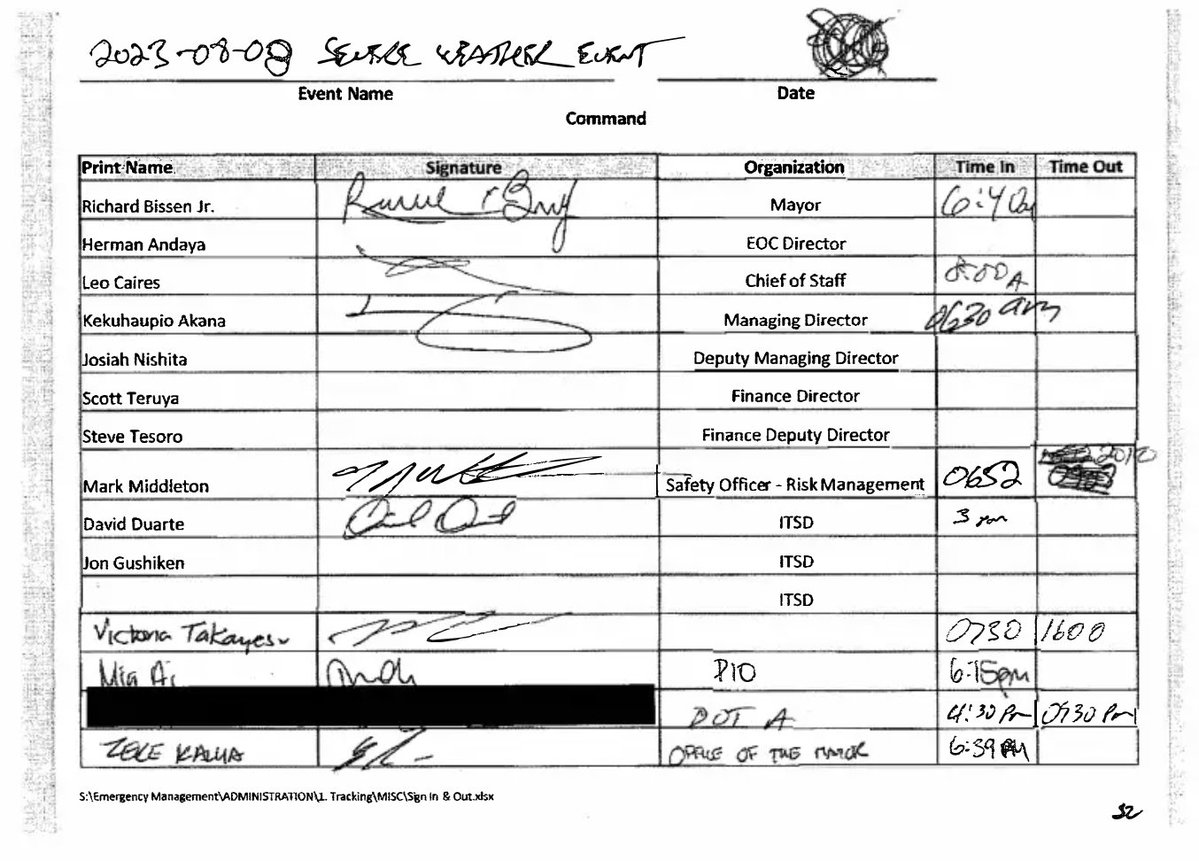 2023-08-08 SEVERE WEATHER EVENT
Event Name Date
Command
Print Name Signature Organization Time In Time Out
Richard Bissen Jr. Mayor 6:40a
Herman Andaya EOC Director
Leo Caires Chief of Staff 8:00A
Kekuhaupio Akana Managing Director 0630 am
Josiah Nishita Deputy Managing Director
Scott Teruya Finance Director
Steve Tesoro Finance Deputy Director
Mark Middleton Safety Officer - Risk Management 0652 2010
David Duarte ITSD 3 pm
Jon Gushiken ITSD
ITSD
Victoria Takayesu 0730 1600
Mia Ai PIO 6:15pm
DOT A 4:30 Pm 0930 Pm
ZEKE KALUA OFFICE OF THE MAYOR 6:39
S:\Emergency Management\ADMINISTRATION\1. Tracking\MISC\Sign In & Out.xlsx
32